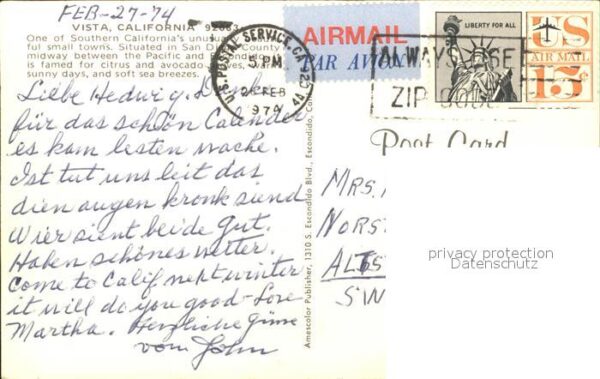 FEB-27-74
VISTA, CALIFORNIA 92083
One of Southern California's unusual
ful small towns. Situated in San Diego County
midway between the Pacific and
is famed for citrus and avocado groves,
sunny days, and soft sea breezes.
Liebe Hedwig. Danke
für das schön Calender
es kam lesten woche.
Ist tut uns leit das
dien augen kronk siend
Wier sient beide gut.
Haben schönes wetter.
Come to Calif next winter
it will do you good - Love
Martha. Herzliche Grüse
vom John
Amescolor Publisher, 1310 S. Escondido Blvd., Escondido, Cal
U.S. POSTAL SERVICE, CA
PM
FEB
1974
AIRMAIL
PAR AVION
LIBERTY FOR ALL
US
AIR MAIL
15¢
ALWAYS USE
ZIP CODE
Post Card
MRS.
NORS
ALTS
SW
privacy protection
Datenschutz